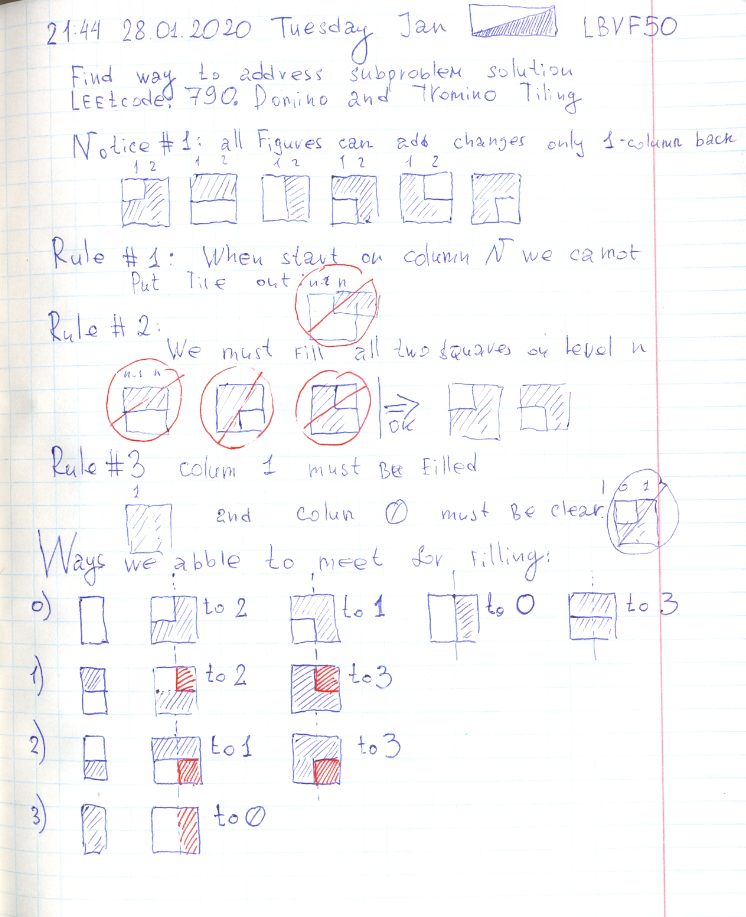 21:44 28.01.2020 Tuesday Jan LBVF50
Find way to address subproblem solution
LEEtcode: 790. Domino and Tromino Tiling
Notice #1: all Figures can add changes only 1-column back
1 2 1 2 1 2 1 2 1 2
Rule #1: When start on column N we cannot
Put Tile out: n-1 n
Rule #2:
We must Fill all two squares on level n
n-1 n
=> ok
Rule #3 colum 1 must BE Filled
1 0 1
and colun 0 must Be clear.
Ways we abble to meet for filling:
0) to 2 to 1 to 0 to 3
1) to 2 to 3
2) to 1 to 3
3) to 0